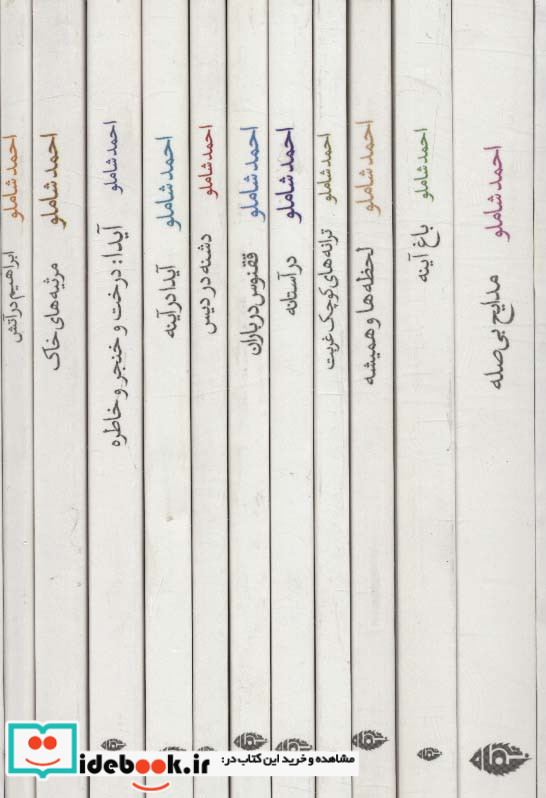 احمد شاملو
مدایح بی‌صله
احمد شاملو
باغ آینه
احمد شاملو
لحظه‌ها و همیشه
احمد شاملو
ترانه‌های کوچک غربت
احمد شاملو
در آستانه
احمد شاملو
ققنوس در باران
احمد شاملو
دشنه در دیس
احمد شاملو
آیدا در آینه
احمد شاملو
آیدا: درخت و خنجر و خاطره
احمد شاملو
مرثیه‌های خاک
احمد شاملو
ابراهیم در آتش
مشاهده و خرید این کتاب در:
idebook.ir